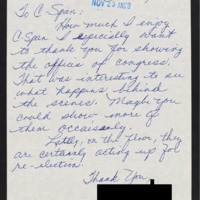 To C. Span:
NOV 23
How much I enjoy
C. Span I especially want
to thank you for showing
the offices of congress.
That was interesting to see
what happens behind
the scenes. Maybe you
could show more of
them occasionly.
Lately, on the floor, they
are certainly acting up for
re-election!
Thank You